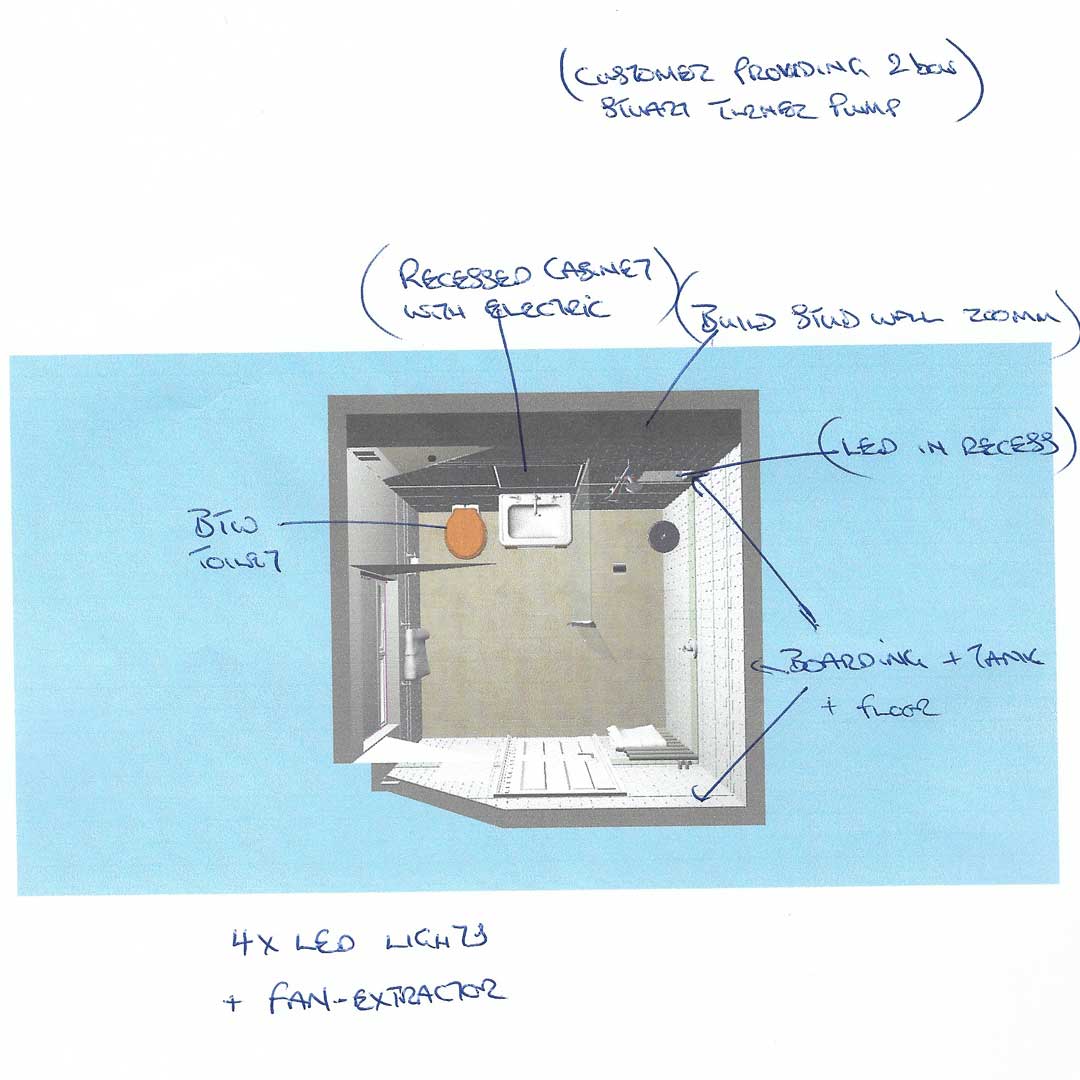 (CUSTOMER PROVIDING 2 bar)
STUART TURNER PUMP
(RECESSED CABINET
WITH ELECTRIC)
(BUILD STUD WALL 200MM)
(LED IN RECESS)
BTW
TOILET
BOARDING + TANK
+ FLOOR
4X LED LIGHTS
+ FAN-EXTRACTOR